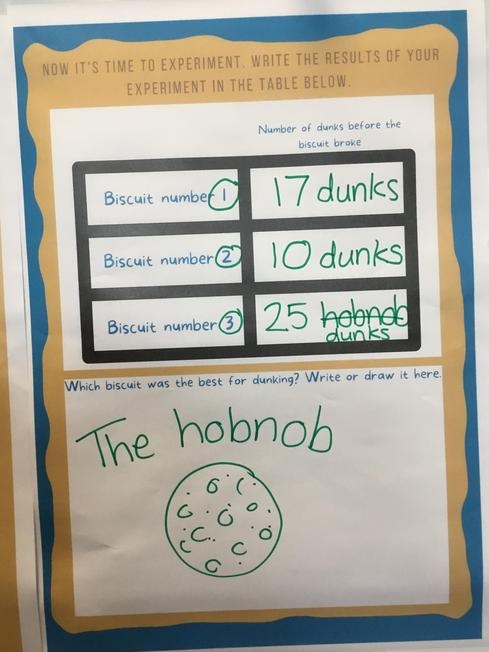 NOW IT'S TIME TO EXPERIMENT. WRITE THE RESULTS OF YOUR
EXPERIMENT IN THE TABLE BELOW.
Number of dunks before the
biscuit broke
Biscuit number 1
17 dunks
Biscuit number 2
10 dunks
Biscuit number 3
25 hobnob
dunks
Which biscuit was the best for dunking? Write or draw it here.
The hobnob